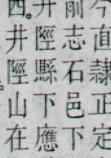 今直隸正定
前志石邑下
井陘縣下應
西。井陘山在